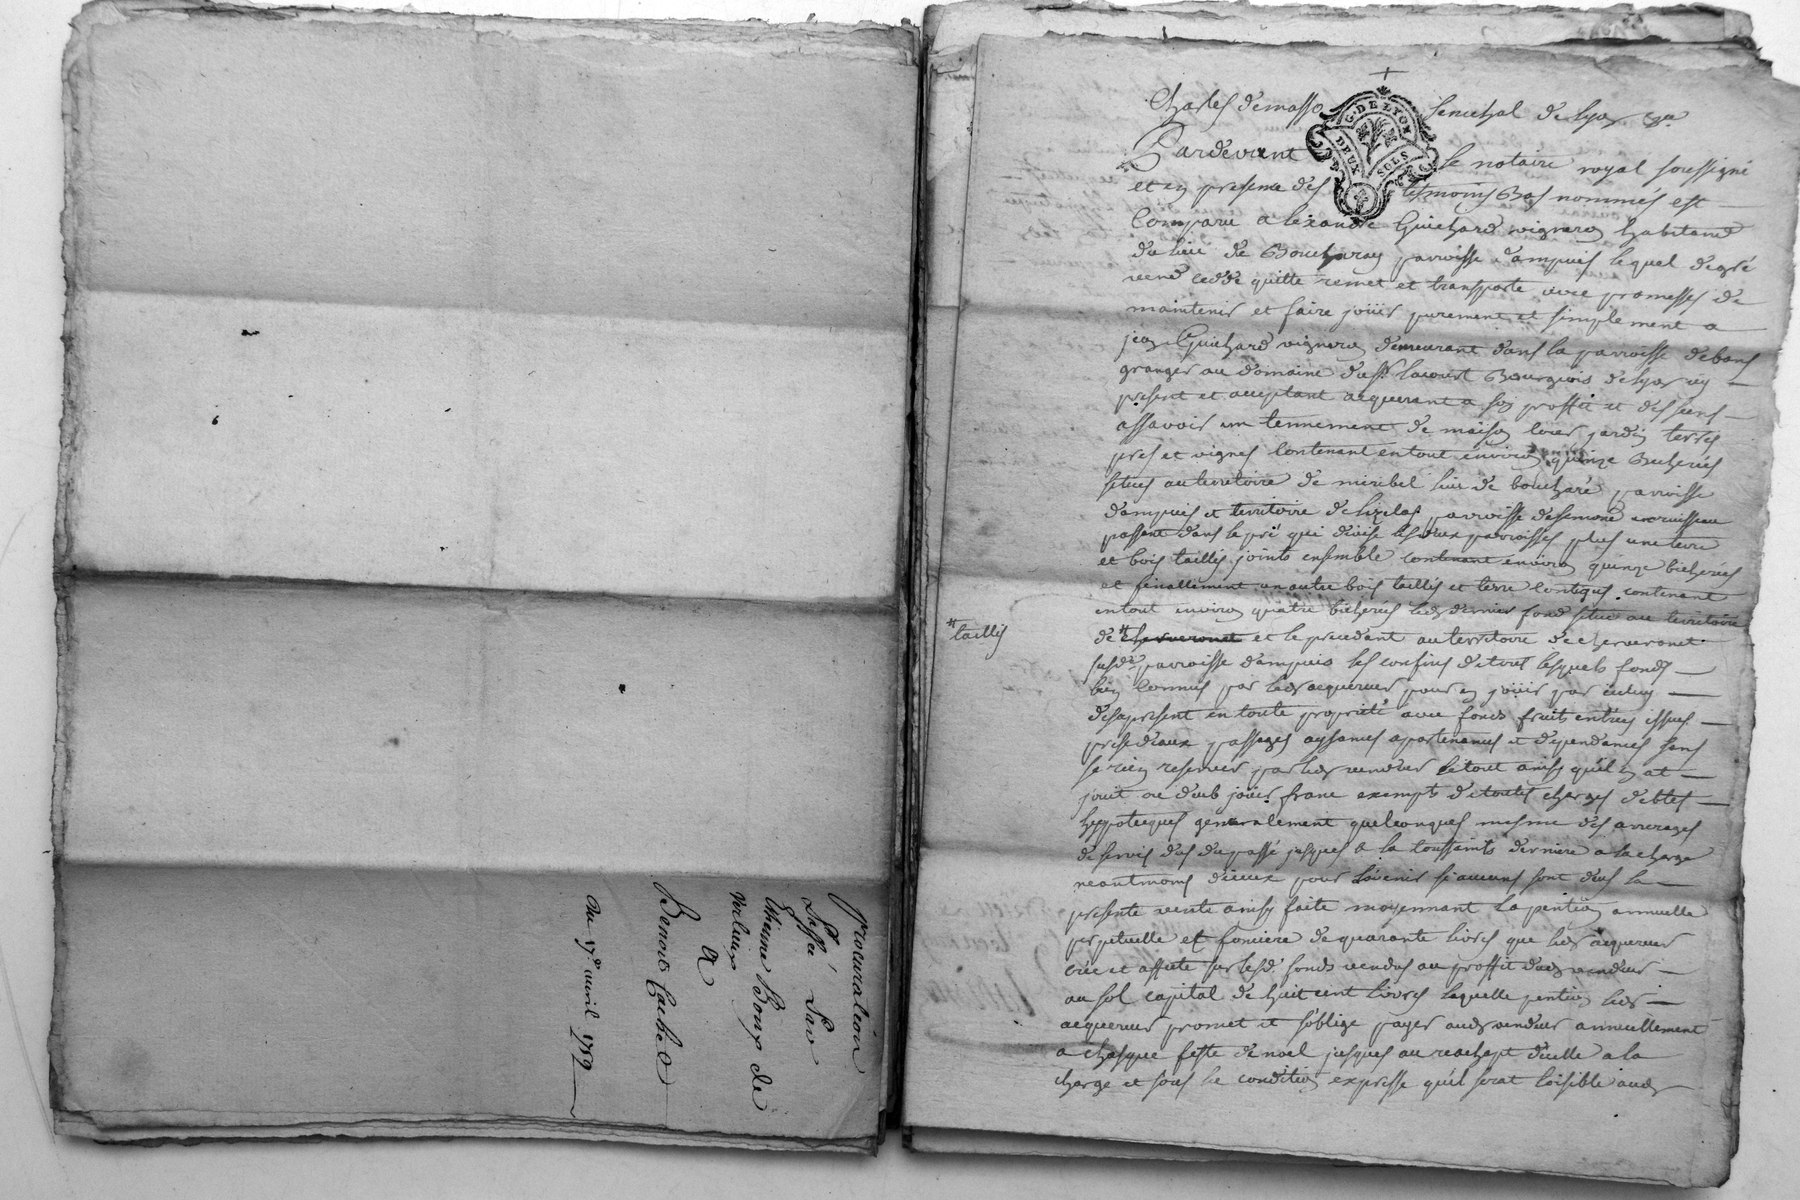 procuration
Passé Par
Etienne Bonux de
verlieux
A
Benoit Cachet
du 17e avril 1752
Charles demasso senechal de lyon &a
G. DE LYON
DEUX SOLS
Pardevant le notaire royal soussigné
et en presence des tesmoins Bas nommés est
Comparu alexandre Guichard vigneron habitand
du lieu de Boucharey parroisse dampuis lequel degré
vend cedde quitte remet et transporte avec promesses de
maintenir et faire joüir purement et simplement a
jean Guichard vigneron demeurant dans la parroisse debans
granger au domaine du sr lacourt Bourgeois de lyon icy
present et acceptant acquerant a son proffit et des siens
assavoir un tennement de maison cour jardin terres
pres et vignes Contenant entout environ quinze Bicherées
situés au territoire de miribel lieu de boucharé parroisse
dampuis et territoire de parroisse desemond un ruisseau
passant dans le pré qui divise les deux parroisses plus une terre
et bois taillis joints ensemble contenant environ quinze bicherées
et finallement un autre bois taillis et terre contigus contenant
entout environ quatre bicherées led dernier fond situé au territoire
de et le precedant au territoire de cherveronet
taillis
susde parroisse dampuis les confins ditout lesquels fonds
bien Connus par led acquereur pour en joüir par iceluy
desapresent en toute proprieté avec fonds fruits entrées issues
prise deaux passages aysances apartenances et dependances sans
se rien reserver par led vendeur letout ainsy quil en at
jouit ou deub joüir franc exempts detouttes charges debtes
hyppoteques generalement quelconques mesme des arrerages
de servis dus du passé jusques a la toussaints derniere a lacharge
neantmoins diceux pour lavenir si aucuns sont deus la
presente vente ainsy faite moyennant la pention annuelle
perpetuelle et fonciere de quarante livres que led acquereur
crée et assiete sur lesd. fonds vendus au proffit dud vendeur
au sol capital de huit cent livres laquelle pention led
acquereur promet et soblige payer aud vendeur annuellement
a chasque feste de noel jusques au reachapt dicelle a la
charge et sous la condition expresse quil serat loisible aud